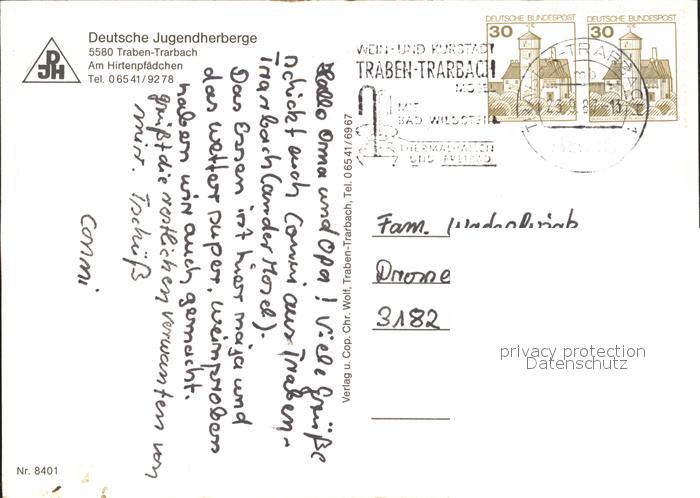 Deutsche Jugendherberge
5580 Traben-Trarbach
Am Hirtenpfädchen
Tel. 06541/9278
DJH
Hallo Oma und Opa! Viele Grüße
schickt euch Conni aus Traben-
Trarbach (an der Mosel).
Das Essen ist hier naja und
das Wetter super, Weinproben
haben wir auch gemacht.
Grüßt die restlichen verwanten von
mir. Tschüß
Conni
Nr. 8401
Verlag u. Cop. Chr. Wolf, Traben-Trarbach, Tel. 06541/6967
WEIN- UND KURSTADT
TRABEN-TRARBACH
MOSEL
MIT
BAD WILDSTEIN
THERMALHALLEN
UND FREIBAD
DEUTSCHE BUNDESPOST
30
DEUTSCHE BUNDESPOST
30
TRABEN-TRARBACH 1
Fam.
3182
privacy protection
Datenschutz